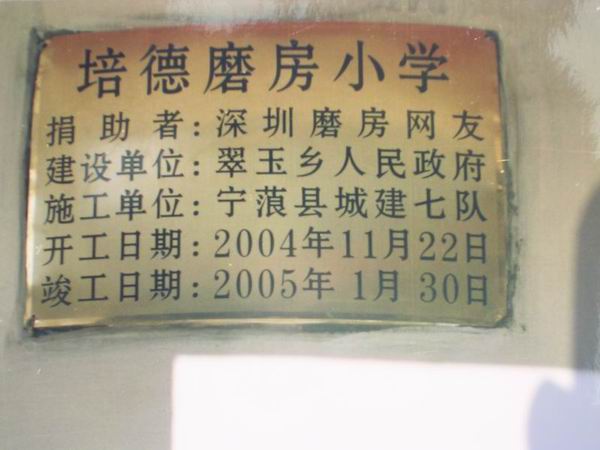 培德磨房小学
捐助者:深圳磨房网友
建设单位:翠玉乡人民政府
施工单位:宁蒗县城建七队
开工日期:2004年11月22日
竣工日期:2005年1月30日